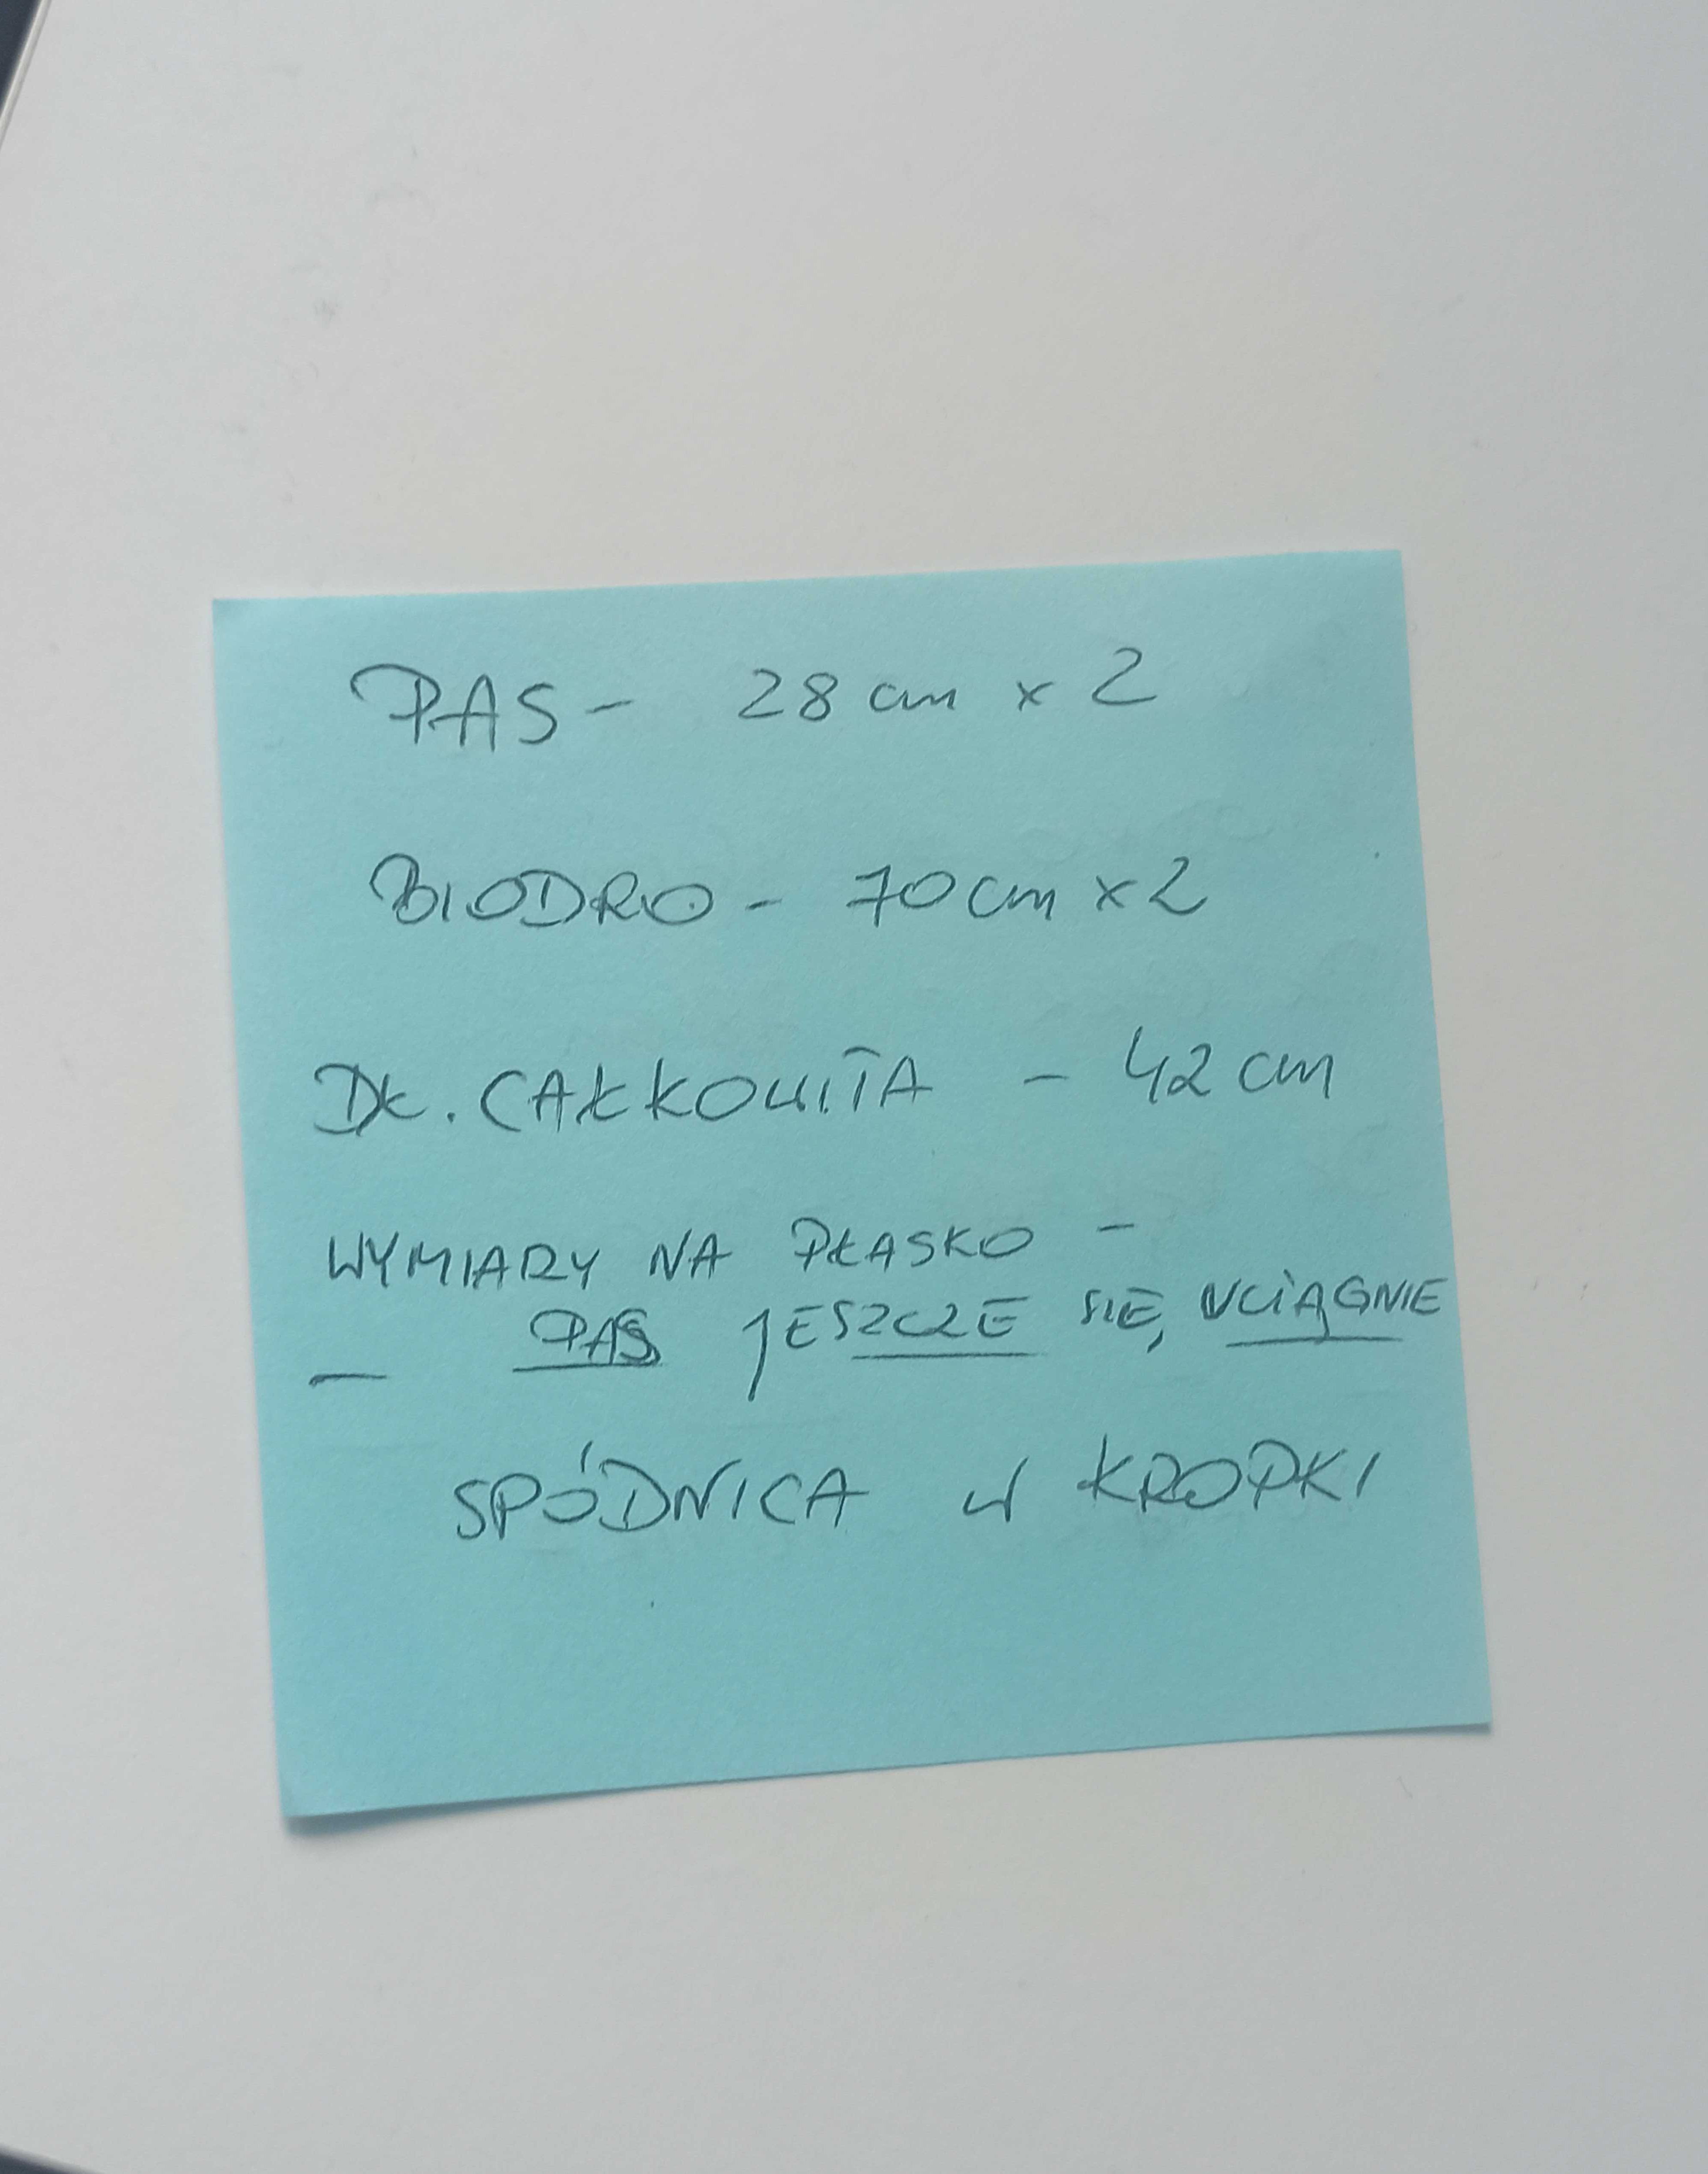 PAS - 28 cm x 2
BIODRO - 70 cm x 2
DŁ. CAŁKOWITA - 42 cm
WYMIARY NA PŁASKO -
- PAS JESZCZE SIĘ WCIĄGNIE
SPÓDNICA W KROPKI